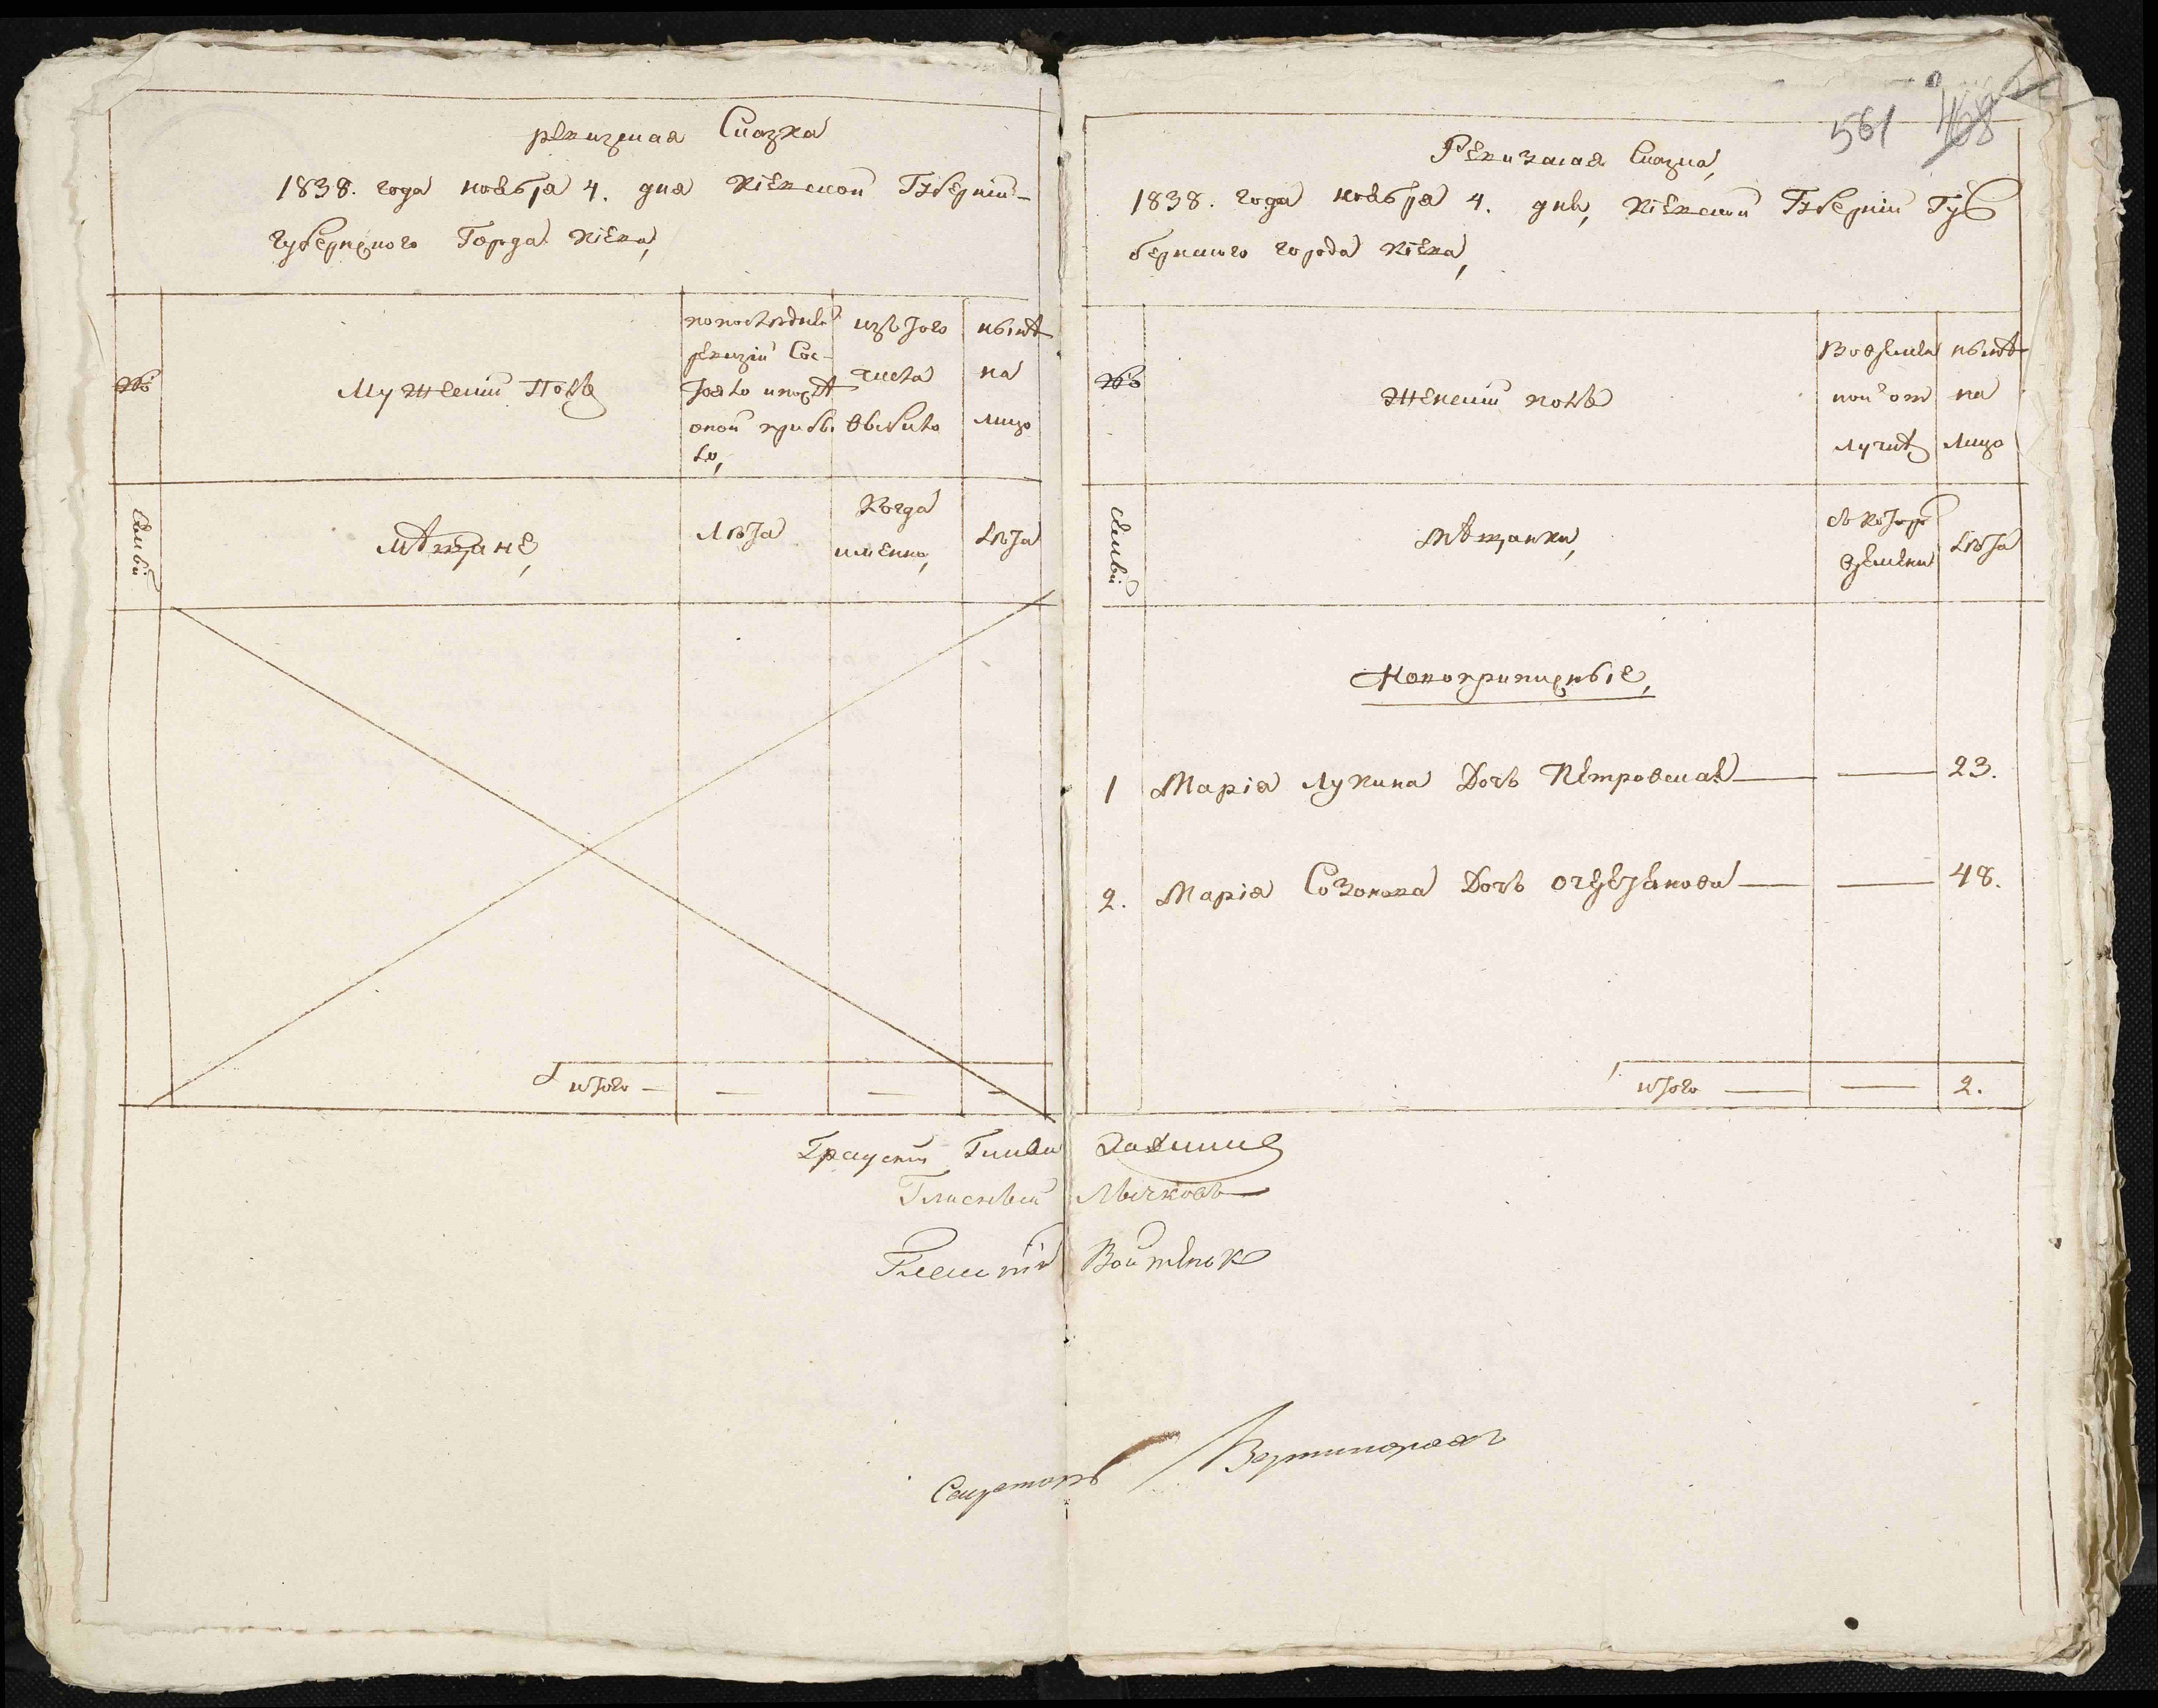 ревизская Сказка
1838. года ноября 4. дня Кіевской Губерніи
губернского Города Кіева,
№
Мужеский Полъ
по последней
ревизіи Сос-
тояло и после
оной прибы
ло,
изъ того
числа
выбыло
ныне
на
лицо
Семьи
Мѣщане,
Лѣта
Когда
именно,
лѣта
итого — — — —
561 468
Ревизская Сказка,
1838. года ноября 4. дня, Кіевской Губерніи Губ
бернского города Кіева,
№
Женский полъ
Во временной отлучке
ныне
на
лицо
Семьи
Мѣщанки,
съ которого времени
лѣта
Новоприписные,
1 Марія Лукина Дочь Петровская — — 23.
2. Марія Созонова Дочь — — 48.
итого — — 2.
Градский Глава
Гласный Лычковъ
Гласный Войтенко
Секретарь